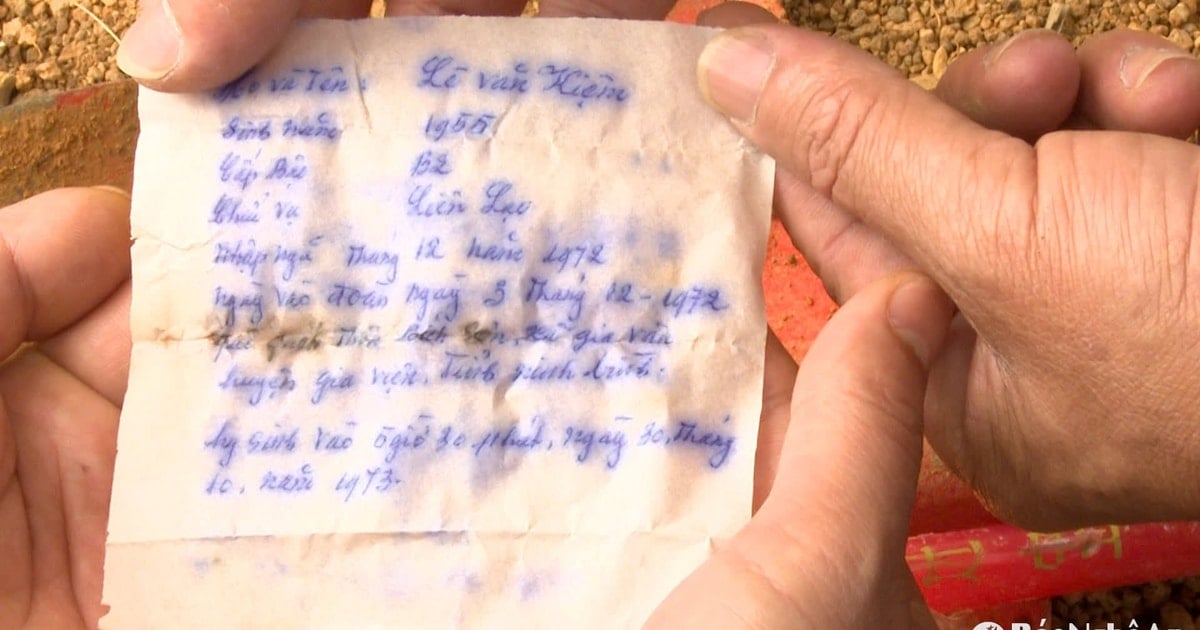 Họ và Tên: Lê Văn Kiệm
Sinh năm 1955
Cấp Bậc B2
Chức vụ Liên Lạc
Nhập ngũ Tháng 12 năm 1972
Ngày vào đoàn ngày 3 Tháng 12-1972
Xã gia vân
huyện gia viễn, Tỉnh ninh bình.
hy sinh vào 5 giờ 30 phút, ngày 30, Tháng
10, năm 1973-
Báo Nghệ An